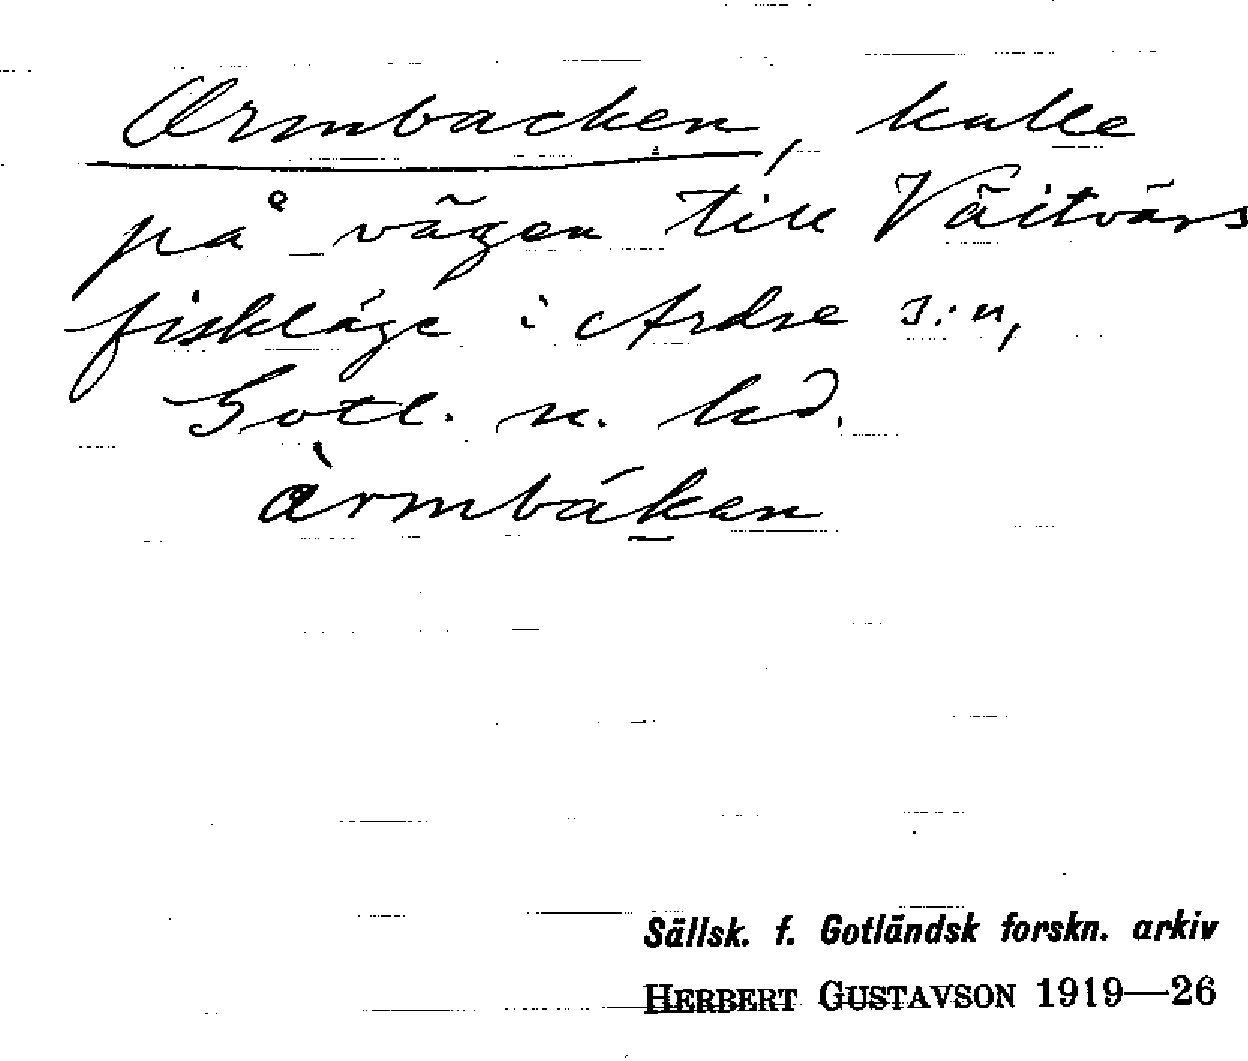 Ormbacken, kulle
på vägen till Väitvärs
fiskläge i Ardre s:n,
Gotl. n. hd.
àrmbákan
Sällsk. f. Gotländsk forskn. arkiv
HERBERT GUSTAVSON 1919—26